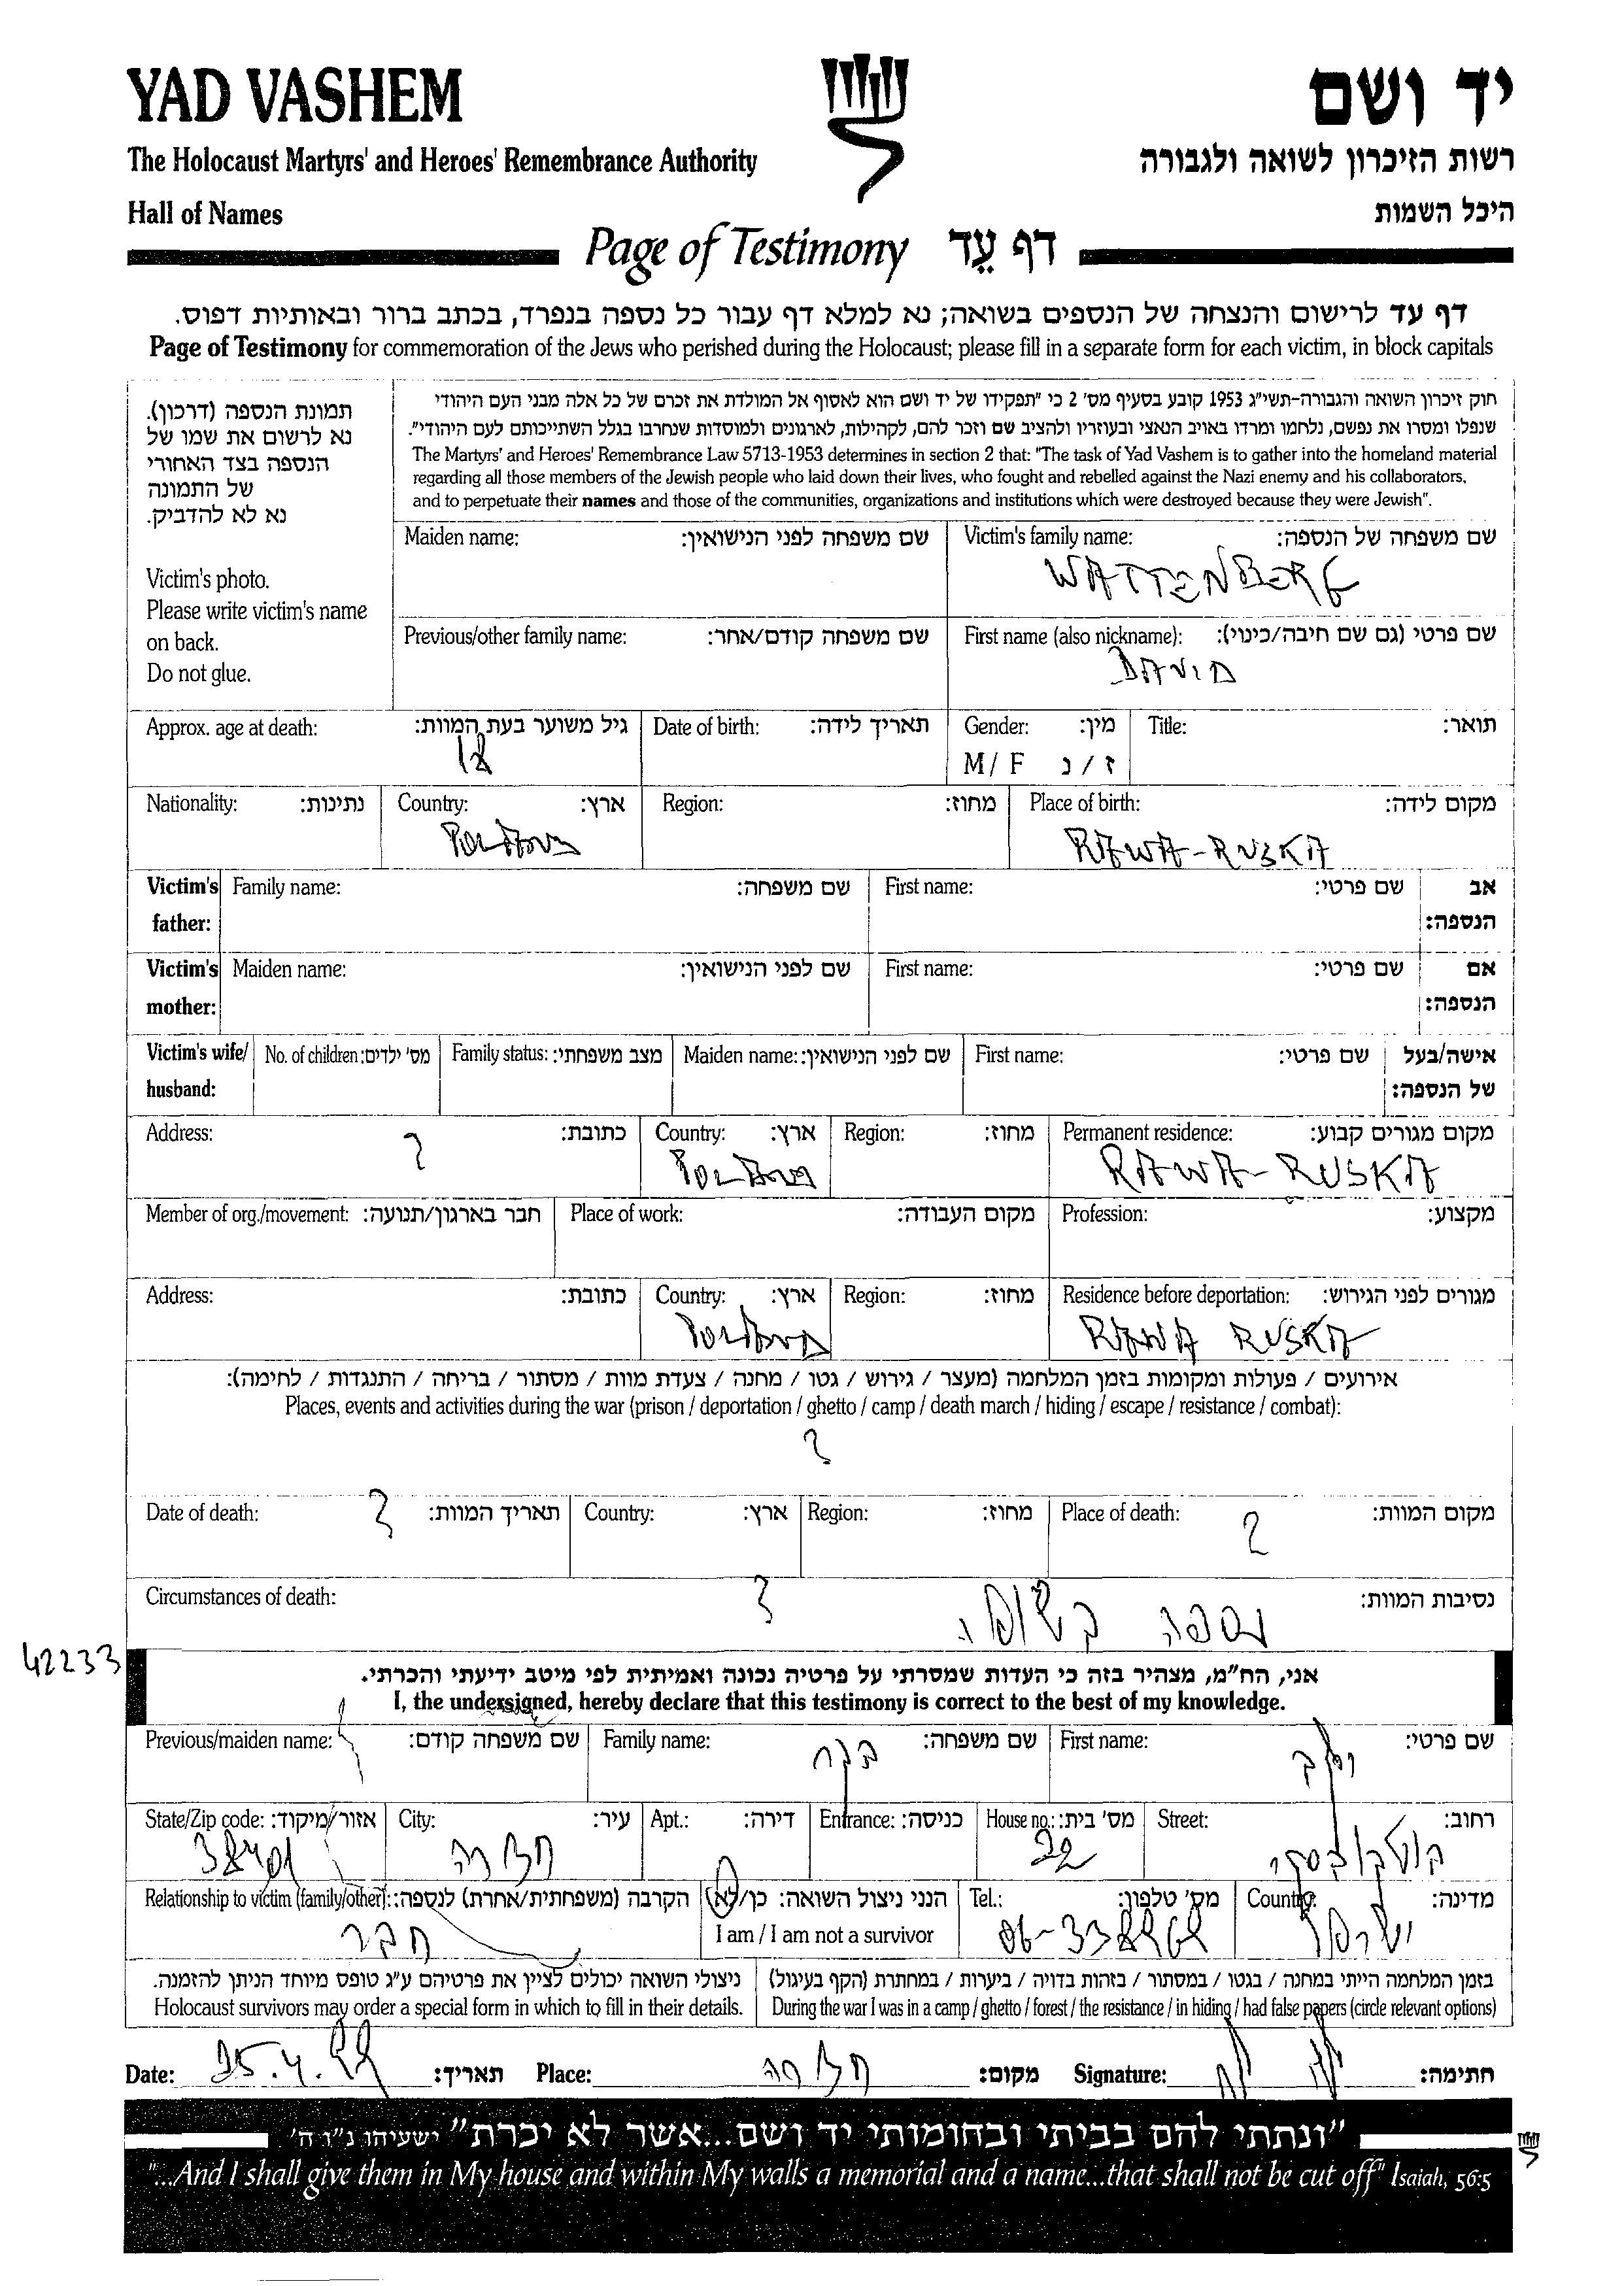 YAD VASHEM
יד ושם
The Holocaust Martyrs' and Heroes' Remembrance Authority
רשות הזיכרון לשואה ולגבורה
Hall of Names
היכל השמות
Page of Testimony דף עֵד
דף עד לרישום והנצחה של הנספים בשואה; נא למלא דף עבור כל נספה בנפרד, בכתב ברור ובאותיות דפוס.
Page of Testimony for commemoration of the Jews who perished during the Holocaust; please fill in a separate form for each victim, in block capitals
תמונת הנספה (דרכון).
נא לרשום את שמו של
הנספה בצד האחורי
של התמונה
נא לא להדביק.
Victim's photo.
Please write victim's name
on back.
Do not glue.
חוק זיכרון השואה והגבורה-תשי"ג 1953 קובע בסעיף מס' 2 כי "תפקידו של יד ושם הוא לאסוף אל המולדת את זכרם של כל אלה מבני העם היהודי
שנפלו ומסרו את נפשם, נלחמו ומרדו באויב הנאצי ובעוזריו ולהציב שם וזכר להם, לקהילות, לארגונים ולמוסדות שנחרבו בגלל השתייכותם לעם היהודי".
The Martyrs' and Heroes' Remembrance Law 5713-1953 determines in section 2 that: "The task of Yad Vashem is to gather into the homeland material
regarding all those members of the Jewish people who laid down their lives, who fought and rebelled against the Nazi enemy and his collaborators,
and to perpetuate their names and those of the communities, organizations and institutions which were destroyed because they were Jewish".
Maiden name: שם משפחה לפני הנישואין: Victim's family name: שם משפחה של הנספה:
WATTENBERG
Previous/other family name: שם משפחה קודם/אחר: First name (also nickname): שם פרטי (גם שם חיבה/כינוי):
DAVID
Approx. age at death: גיל משוער בעת המוות: Date of birth: תאריך לידה: Gender: מין: Title: תואר:
18
M / F ז / נ
Nationality: נתינות: Country: ארץ: Region: מחוז: Place of birth: מקום לידה:
POLAND RAWA-RUSKA
Victim's father: Family name: שם משפחה: First name: שם פרטי: אב הנספה:
Victim's mother: Maiden name: שם לפני הנישואין: First name: שם פרטי: אם הנספה:
Victim's wife/ husband: No. of children: מס' ילדים: Family status: מצב משפחתי: Maiden name: שם לפני הנישואין: First name: שם פרטי: אישה/בעל של הנספה:
Address: כתובת: Country: ארץ: Region: מחוז: Permanent residence: מקום מגורים קבוע:
? POLAND RAWA-RUSKA
Member of org./movement: חבר בארגון/תנועה: Place of work: מקום העבודה: Profession: מקצוע:
Address: כתובת: Country: ארץ: Region: מחוז: Residence before deportation: מגורים לפני הגירוש:
POLAND RAWA RUSKA
אירועים / פעולות ומקומות בזמן המלחמה (מעצר / גירוש / גטו / מחנה / צעדת מוות / מסתור / בריחה / התנגדות / לחימה):
Places, events and activities during the war (prison / deportation / ghetto / camp / death march / hiding / escape / resistance / combat):
?
Date of death: ? תאריך המוות: Country: ארץ: Region: מחוז: Place of death: ? מקום המוות:
Circumstances of death: ? נסיבות המוות:
נספה בשואה
42233
אני, הח"מ, מצהיר בזה כי העדות שמסרתי על פרטיה נכונה ואמיתית לפי מיטב ידיעתי והכרתי.
I, the undersigned, hereby declare that this testimony is correct to the best of my knowledge.
Previous/maiden name: שם משפחה קודם: Family name: שם משפחה: First name: שם פרטי:
State/Zip code: אזור/מיקוד: City: עיר: Apt.: דירה: Entrance: כניסה: House no.: מס' בית: Street: רחוב:
חדרה 22
Relationship to victim (family/other): הקרבה (משפחתית/אחרת) לנספה: הנני ניצול השואה: כן/לא Tel.: מס' טלפון: Country: מדינה:
חבר I am / I am not a survivor ישראל
ניצולי השואה יכולים לציין את פרטיהם ע"ג טופס מיוחד הניתן להזמנה. בזמן המלחמה הייתי במחנה / בגטו / במסתור / בזהות בדויה / ביערות / במחתרת (הקף בעיגול)
Holocaust survivors may order a special form in which to fill in their details. During the war I was in a camp / ghetto / forest / the resistance / in hiding / had false papers (circle relevant options)
Date: 25.4.99 תאריך: Place: חדרה מקום: Signature: חתימה:
"ונתתי להם בביתי ובחומותי יד ושם...אשר לא יכרת" ישעיהו נ"ו ה'
"...And I shall give them in My house and within My walls a memorial and a name...that shall not be cut off" Isaiah, 56:5